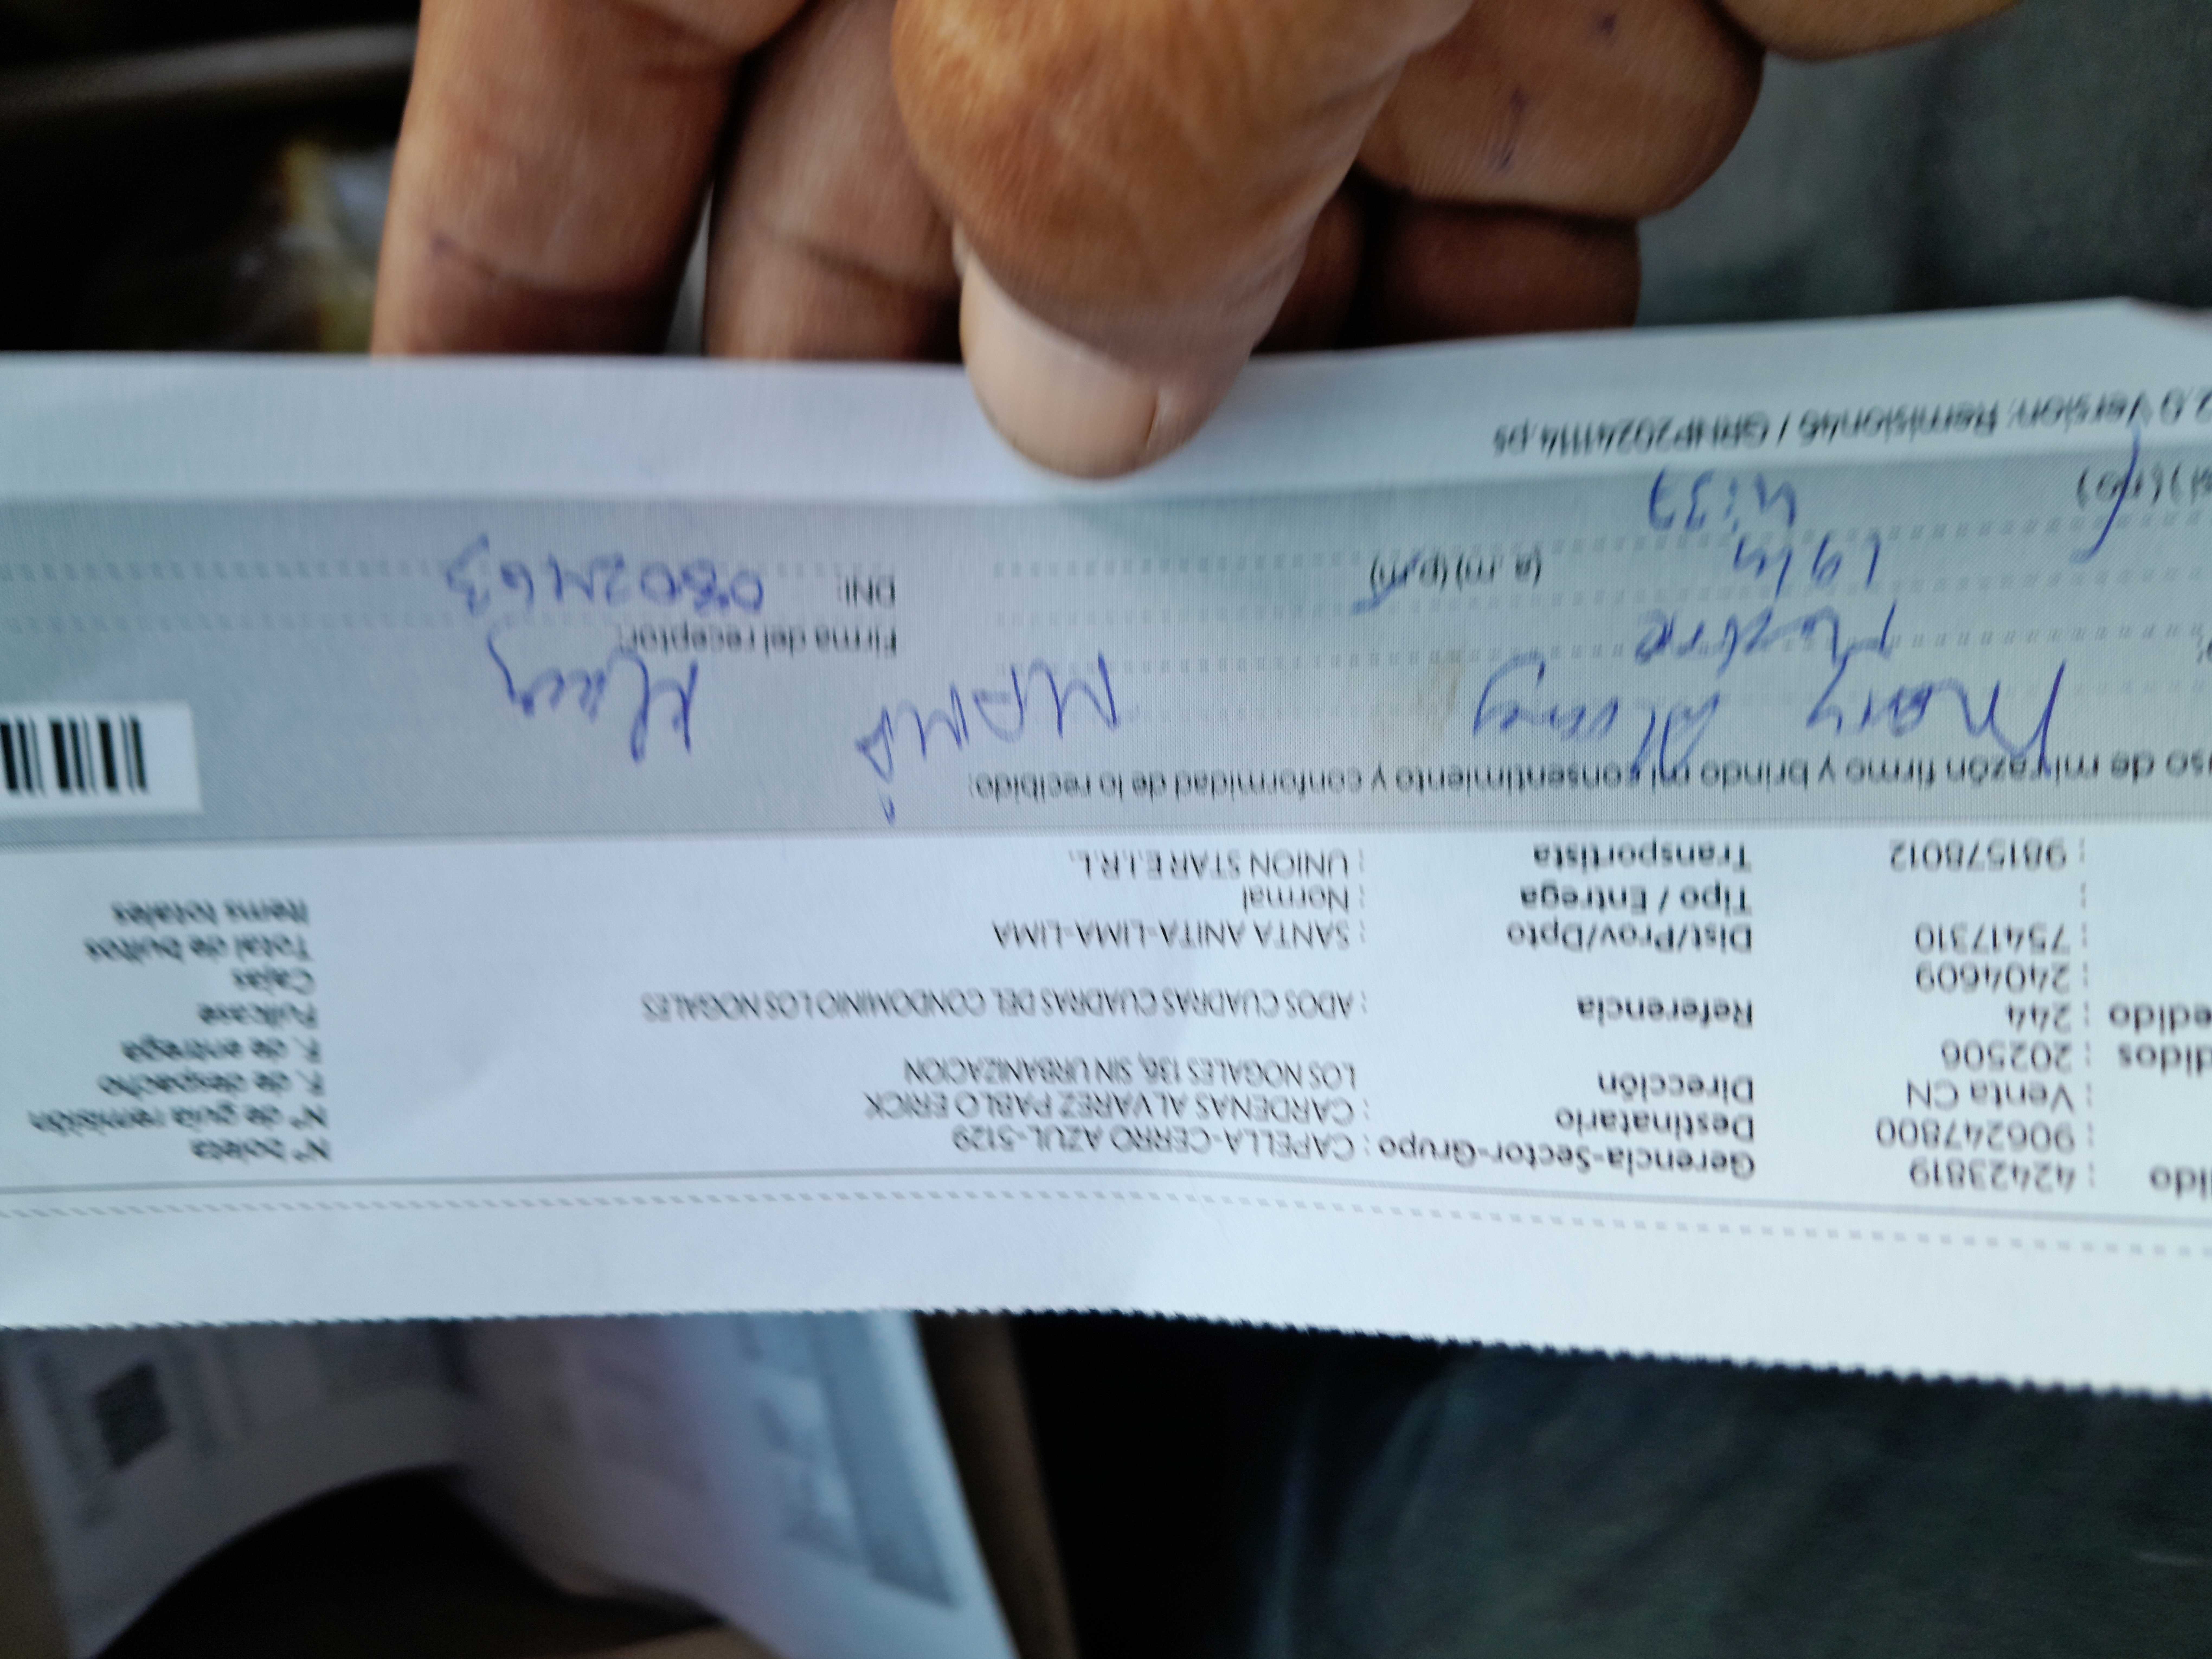 ido : 42423819 Gerencia-Sector-Grupo : CAPELLA-CERRO AZUL-5129 N° boleta
: 906247800 Destinatario : CARDENAS ALVAREZ PABLO ERICK N° de guía remisión
: Venta CN Dirección LOS NOGALES 136, SIN URBANIZACION F. de despacho
didos : 202506 F. de entrega
edido : 244 Referencia : ADOS CUADRAS CUADRAS DEL CONDOMINIO LOS NOGALES Fullcase
: 2404609 Cajas
: 75417310 Dist/Prov/Dpto : SANTA ANITA-LIMA-LIMA Total de bultos
: Tipo / Entrega : Normal Items totales
: 981578012 Transportista : UNION STAR E.I.R.L.
uso de mi razón firmo y brindo mi consentimiento y conformidad de lo recibido:
MAMA
Firma del receptor:
(a.m) (p.m) DNI:
4:37
si) (no)
2.0 Version: Remision46 / GRHP20241114.ps